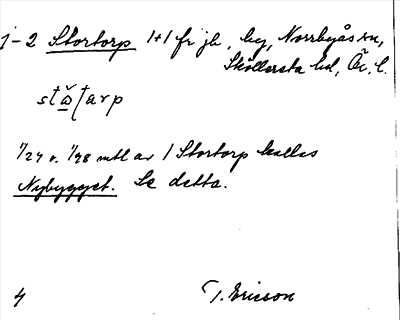 1-2 Stortorp 1+1 fr jb, by, Norrbyås sn,
Sköllersta hd, Ör. l.
1/24 o. 1/48 mtl av 1 Stortorp kallas
Nybygget. Se detta.
4 T. Ericson